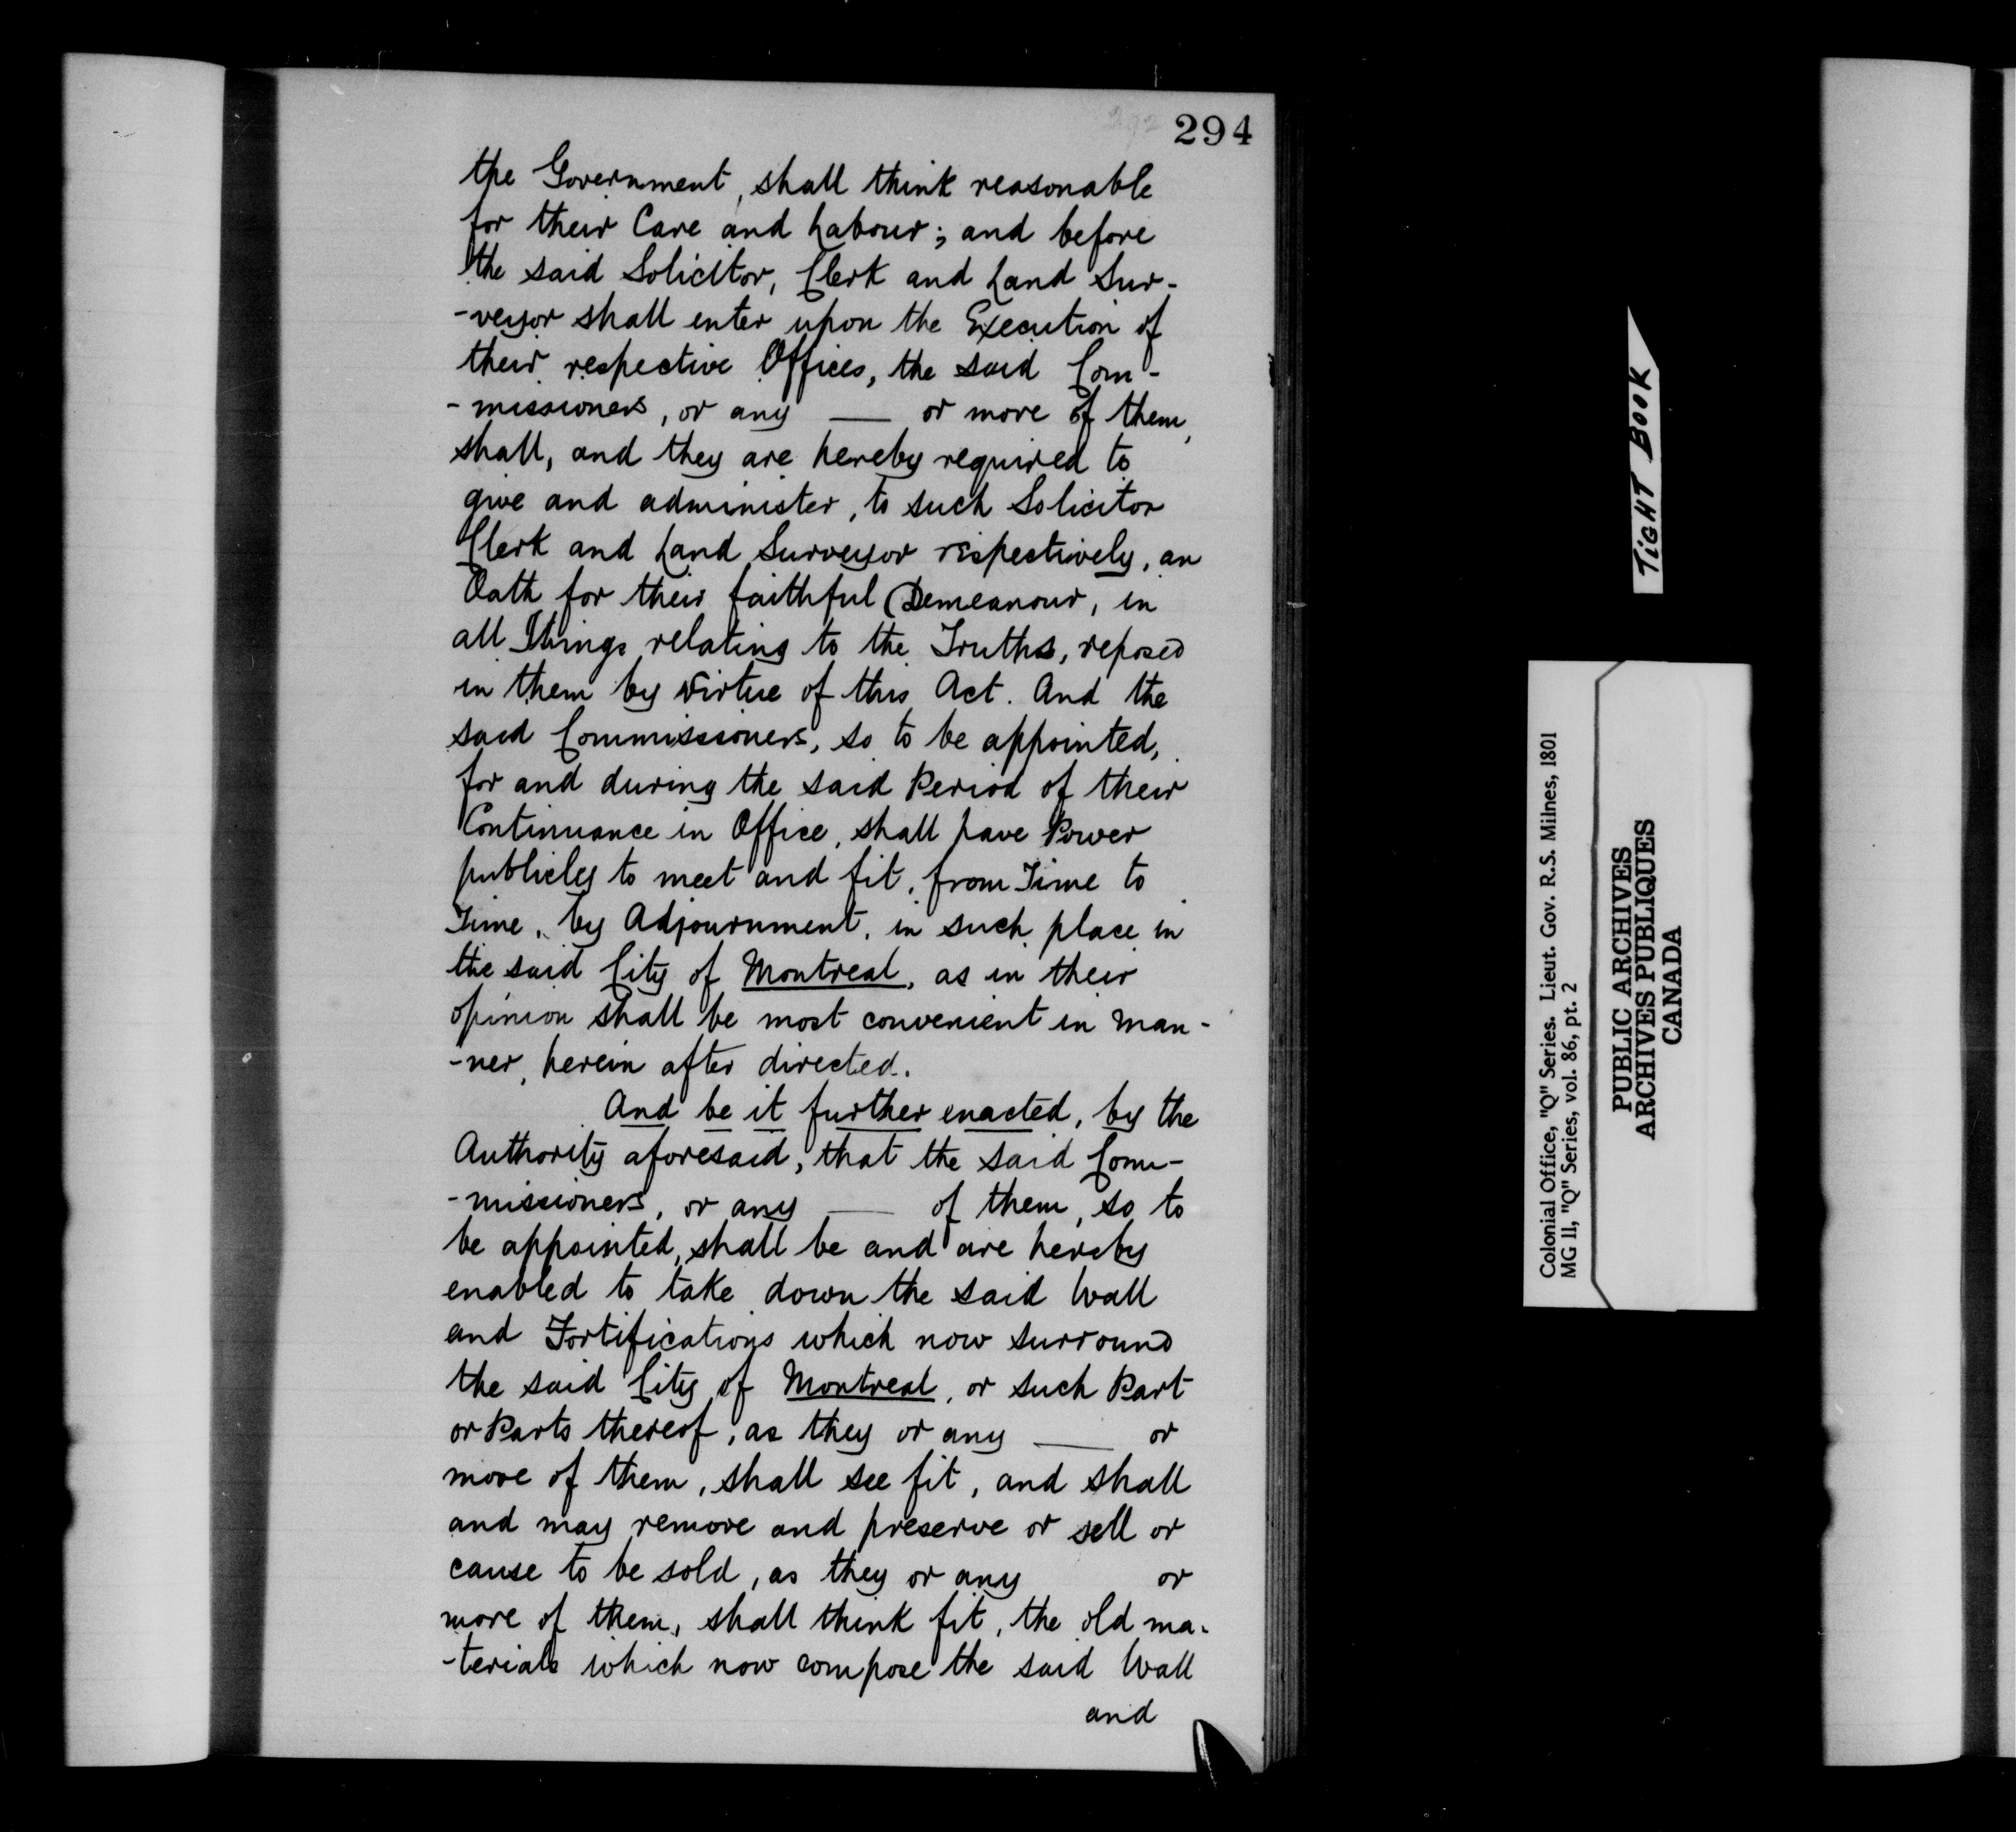 294
the Government, shall think reasonable
for their Care and Labour; and before
the said Solicitor, Clerk and Land Sur-
-veyor shall enter upon the Execution of
their respective Offices, the said Com-
-missioners, or any —— or more of them,
shall, and they are hereby required to
give and administer, to such Solicitor
Clerk and Land Surveyor respectively, an
Oath for their faithful Demeanour, in
all Things relating to the Truths, reposed
in them by virtue of this Act. And the
said Commissioners, so to be appointed,
for and during the said Period of their
Continuance in Office, shall have Power
publicly to meet and fit, from Time to
Time, by Adjournment, in such place in
the said City of Montreal, as in their
opinion shall be most convenient in man-
-ner, herein after directed.
And be it further enacted, by the
Authority aforesaid, that the said Com-
-missioners, or any —— of them, so to
be appointed, shall be and are hereby
enabled to take down the said Wall
and Fortifications which now surround
the said City of Montreal, or such Part
or Parts thereof, as they or any —— or
more of them, shall see fit, and shall
and may remove and preserve or sell or
cause to be sold, as they or any or
more of them, shall think fit, the old ma-
-terials which now compose the said Wall
and
TIGHT BOOK
Colonial Office, "Q" Series. Lieut. Gov. R.S. Milnes, 1801
MG 11, "Q" Series, vol. 86, pt. 2
PUBLIC ARCHIVES
ARCHIVES PUBLIQUES
CANADA